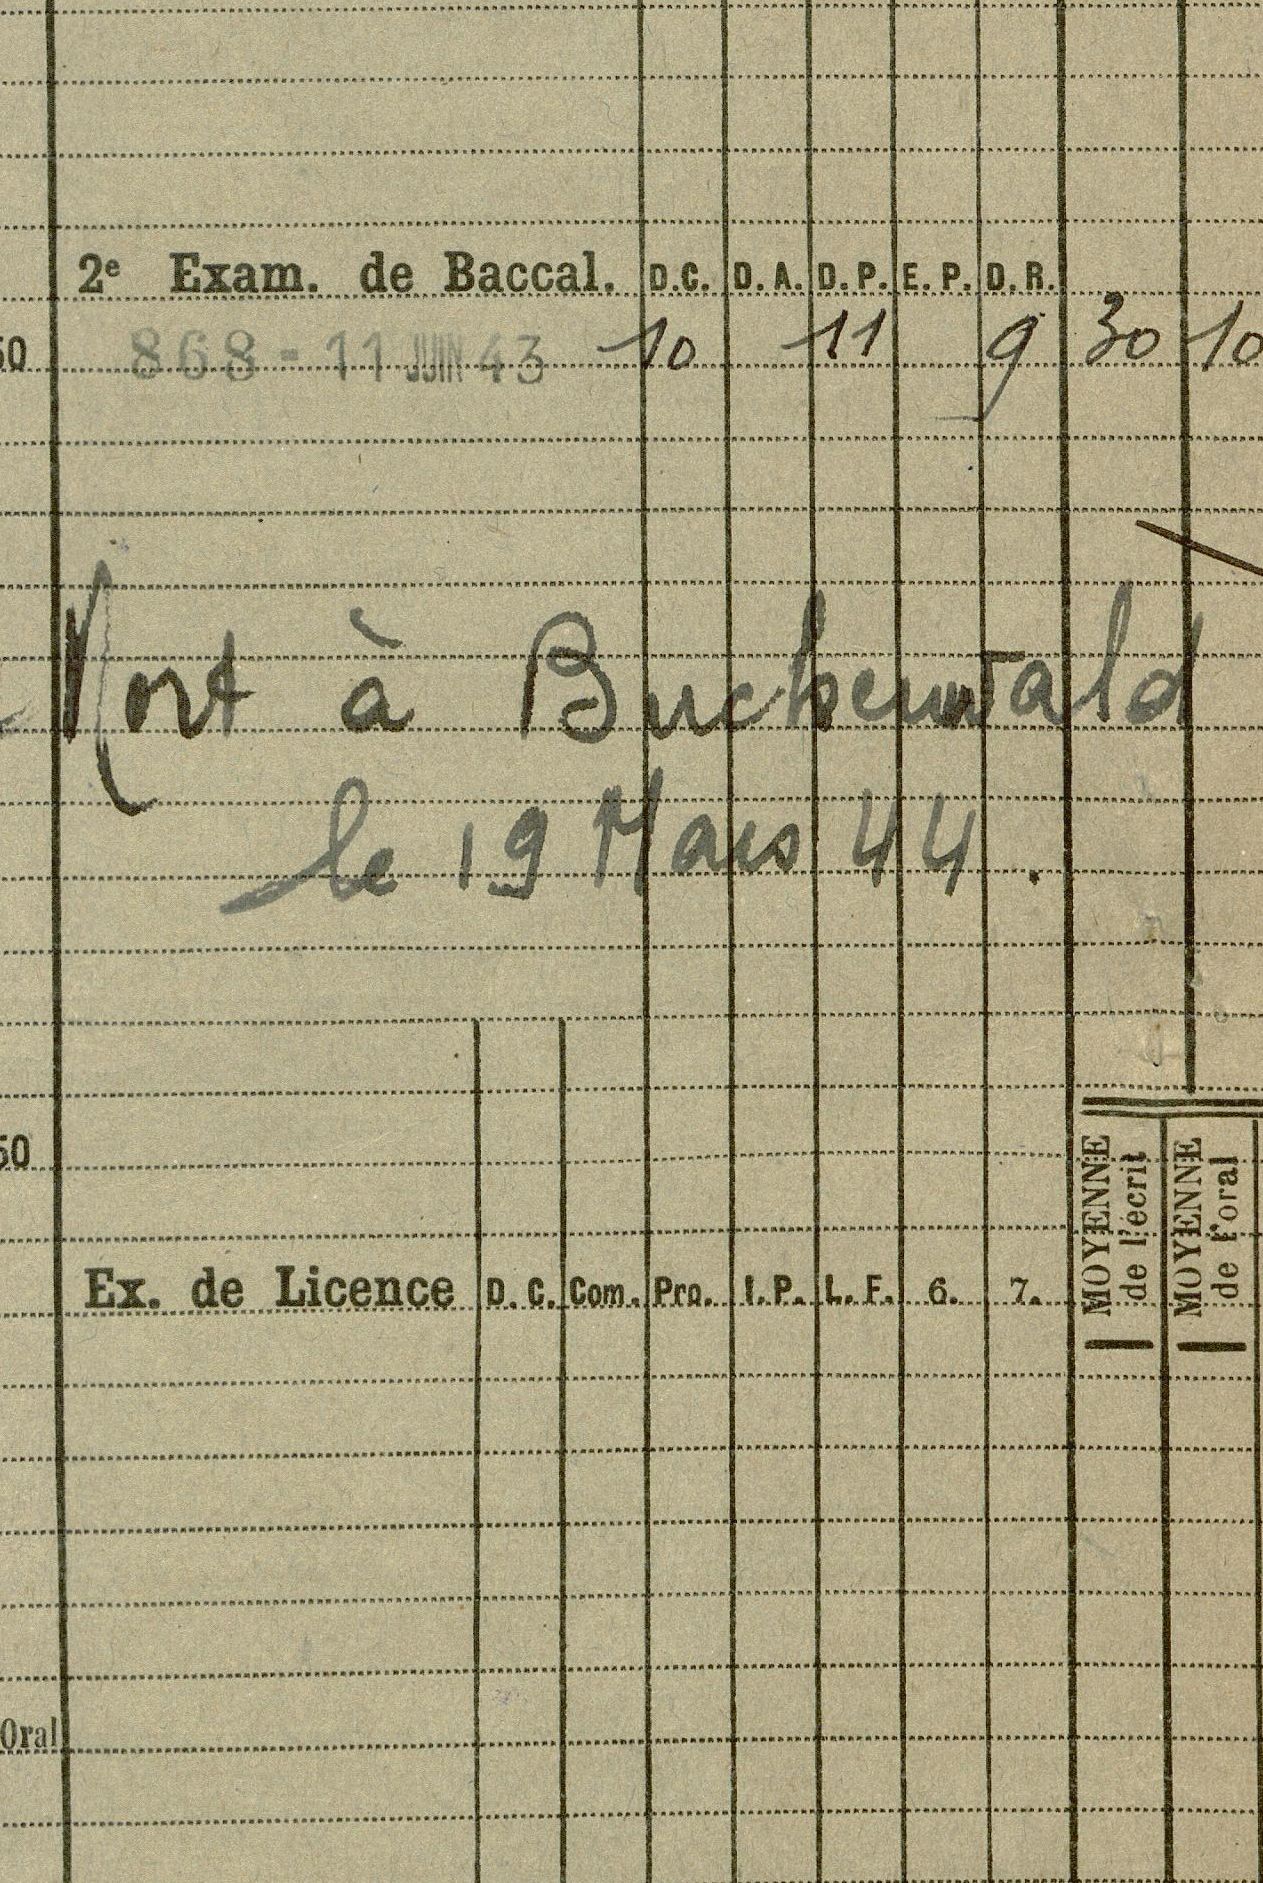 2e Exam. de Baccal. D.C. D.A. D.P. E.P. D.R.
50 868 - 11 JUIN 43 10 11 9 30 10
Mort à Buchenwald
le 19 Mars 44.
50
MOYENNE de l'écrit
MOYENNE de l'oral
Ex. de Licence D.C. Com. Pro. I.P. L.F. 6. 7.
Oral